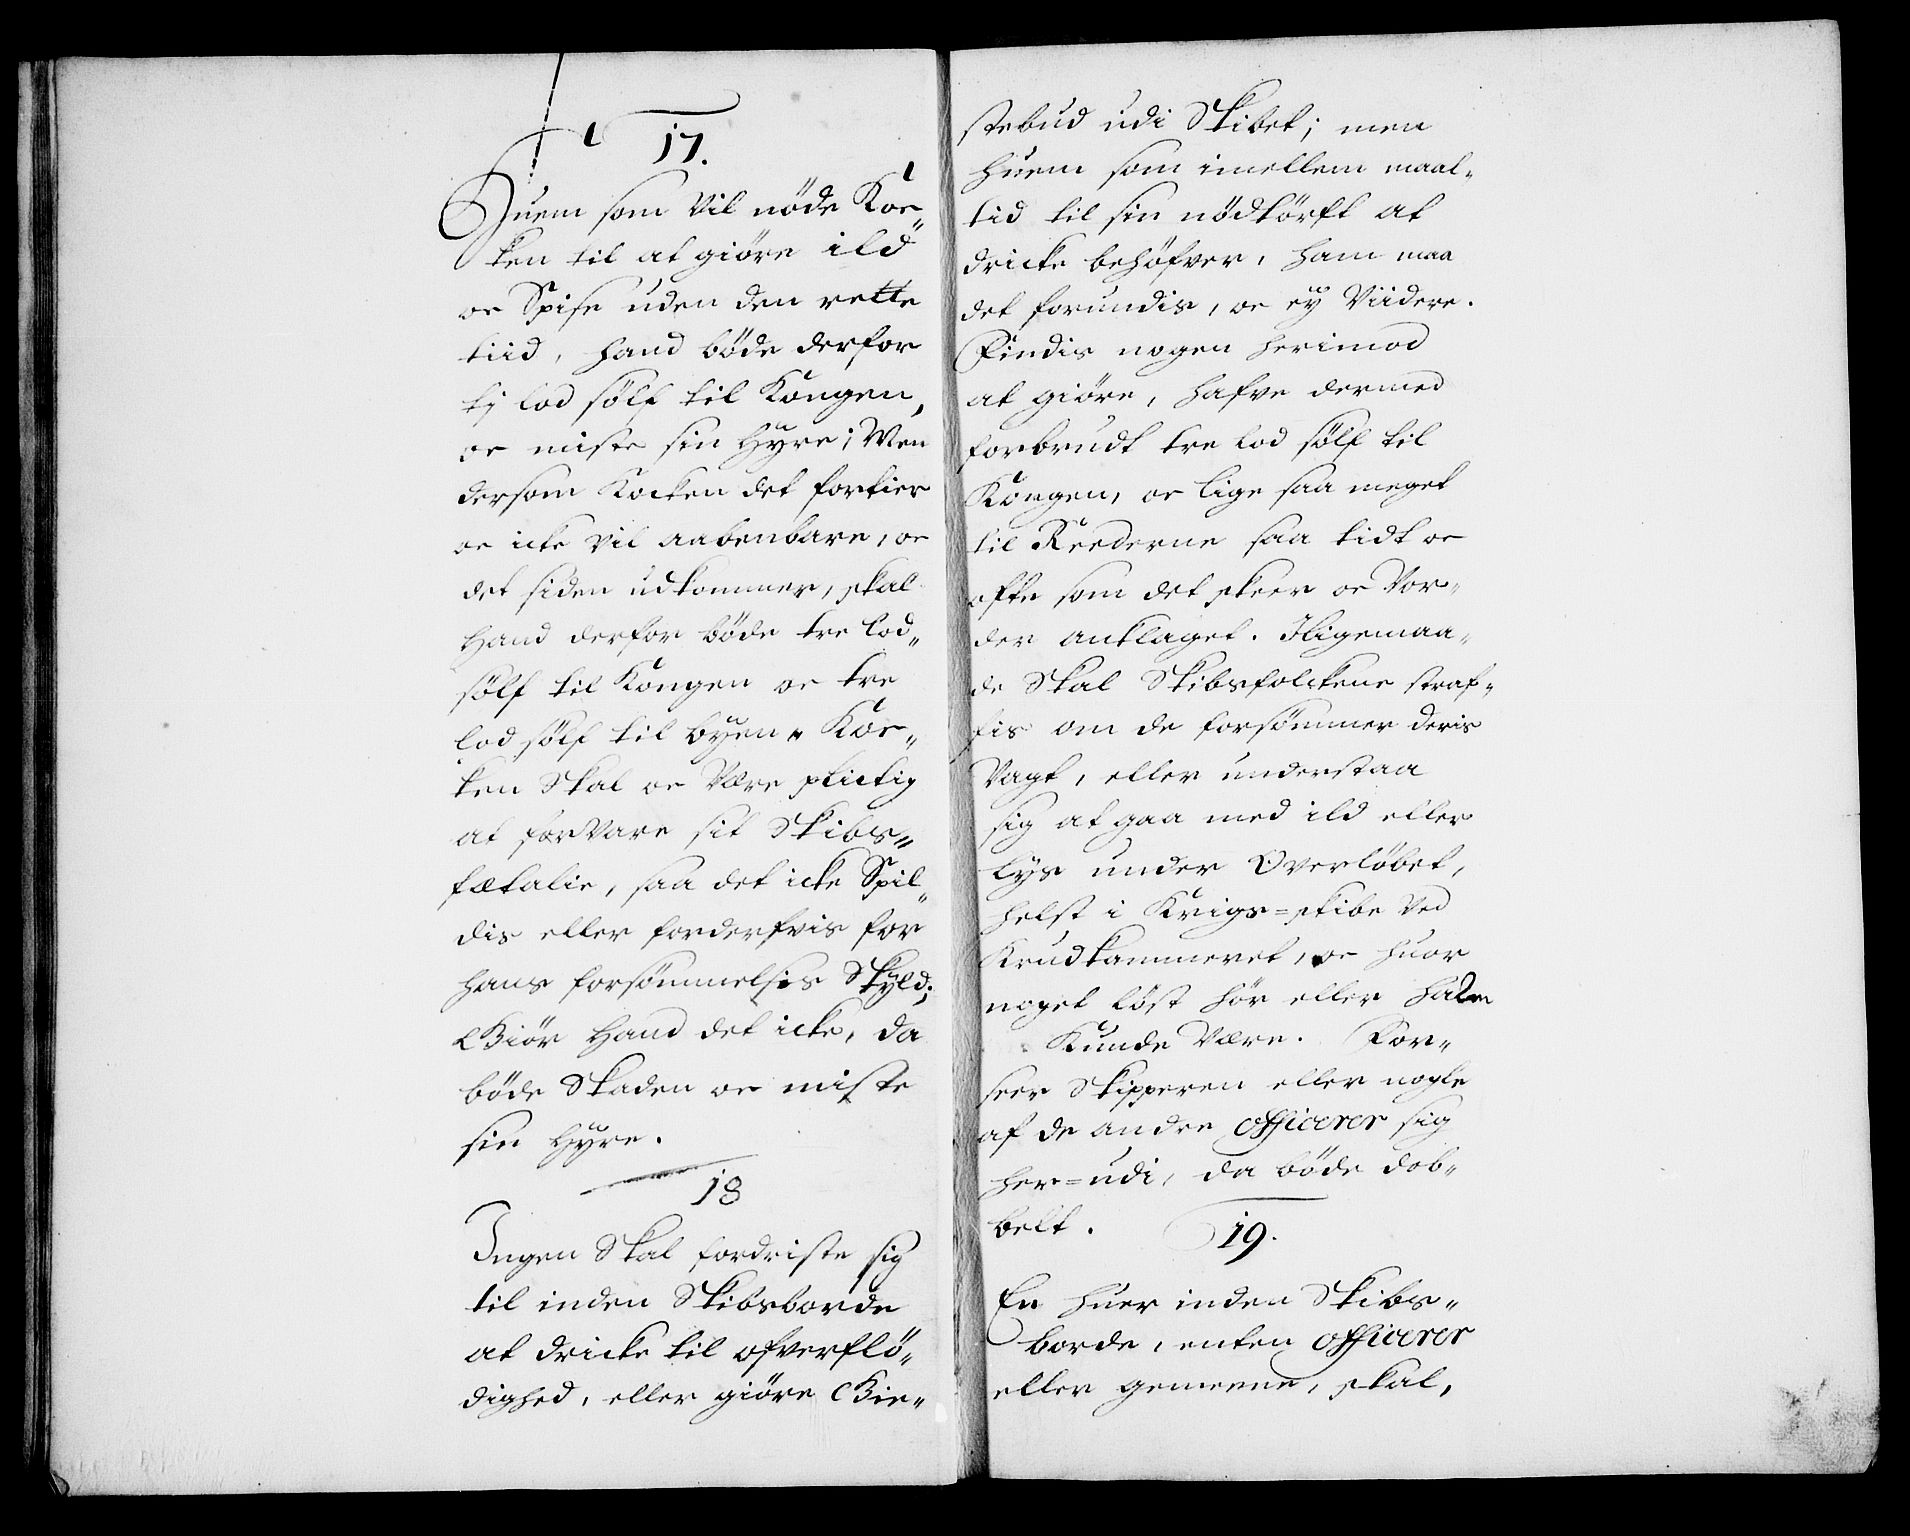 17.
Huem som vil nöde Koc„
ken til at giöre ild
oc Spise uden den rette
tiid, hand böde derfor
tj lod sölf til Kongen,
oc miste sin Hyre; Men
dersom Kocken det fortier
oc icke vil aabenbare, oc
det siden udkommer, skal
Hand derfor böde tre lod„
sölf til Kongen oc tre
lod sölf til byen. Koc„
ken Skal oc være plictig
at forvare sit Skibs„
fetalie, saa det icke Spil„
dis eller forderfvis for
hans forsömmelsis Skyld;
Giör Hand det icke, da
böde Skaden oc miste
sin Hyre.
18
Ingen Skal fordriste sig
til inden Skibsborde
at dricke til ofverflö„
dighed, eller giöre Gie„
stebud udi Skibet; men
huem som imellem maal„
tid til sin nödtörft at
dricke behöfver, ham maa
det forundis, oc ey Viidere.
Findis nogen herimod
at giöre, hafve dermed
forbrudt tre lod sölf til
Kongen, oc lige saa meget
til Reederne saa tidt oc
ofte som det skeer oc Vor„
der anklaget. Iligemaa„
de Skal Skibsfolckene straf„
fis om de forsömmer deris
Vagt, eller understaa
sig at gaa med ild eller
lys under Overlöbet,
helst i Krigs=skibe ved
Krudkammeret, oc huor
noget löst hör eller halm
Kunde være. For„
seer Skipperen eller nogle
af de andre officerer sig
her=udi, da böde dob„
belt.
19.
En huer inden Skibs„
borde, enten officerer
eller gemeene, skal,